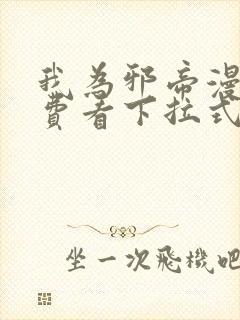 我為邪帝漫
費看下拉式
坐一次飛機吧